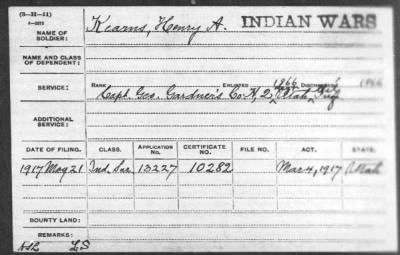 (3-H-11)
NAME OF SOLDIER: Kearns, Henry A. INDIAN WARS
NAME AND CLASS OF DEPENDENT:
RANK ENLISTED 1866 DISCHARGED 1866
SERVICE: Capt. Geo. Gardner's Co. H, 2, Utah
ADDITIONAL SERVICE:
DATE OF FILING. CLASS. APPLICATION NO. CERTIFICATE NO. FILE NO. ACT. STATE.
1917 May 21 Ind. Sur. 13227 10282 Mar 4, 1917 Utah
BOUNTY LAND:
REMARKS:
LS